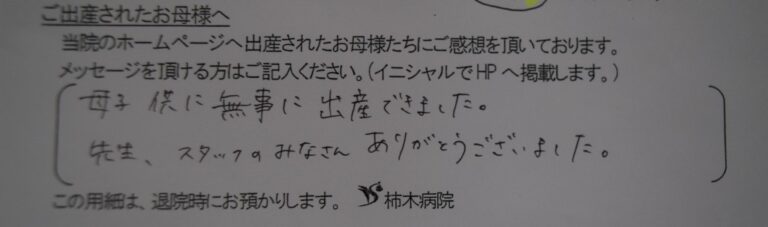 ご出産されたお母様へ
当院のホームページへ出産されたお母様たちにご感想を頂いております。
メッセージを頂ける方はご記入ください。(イニシャルでHPへ掲載します。)
母子供に無事に出産できました。
先生、スタッフのみなさんありがとうございました。
この用細は、退院時にお預かりします。 柿木病院